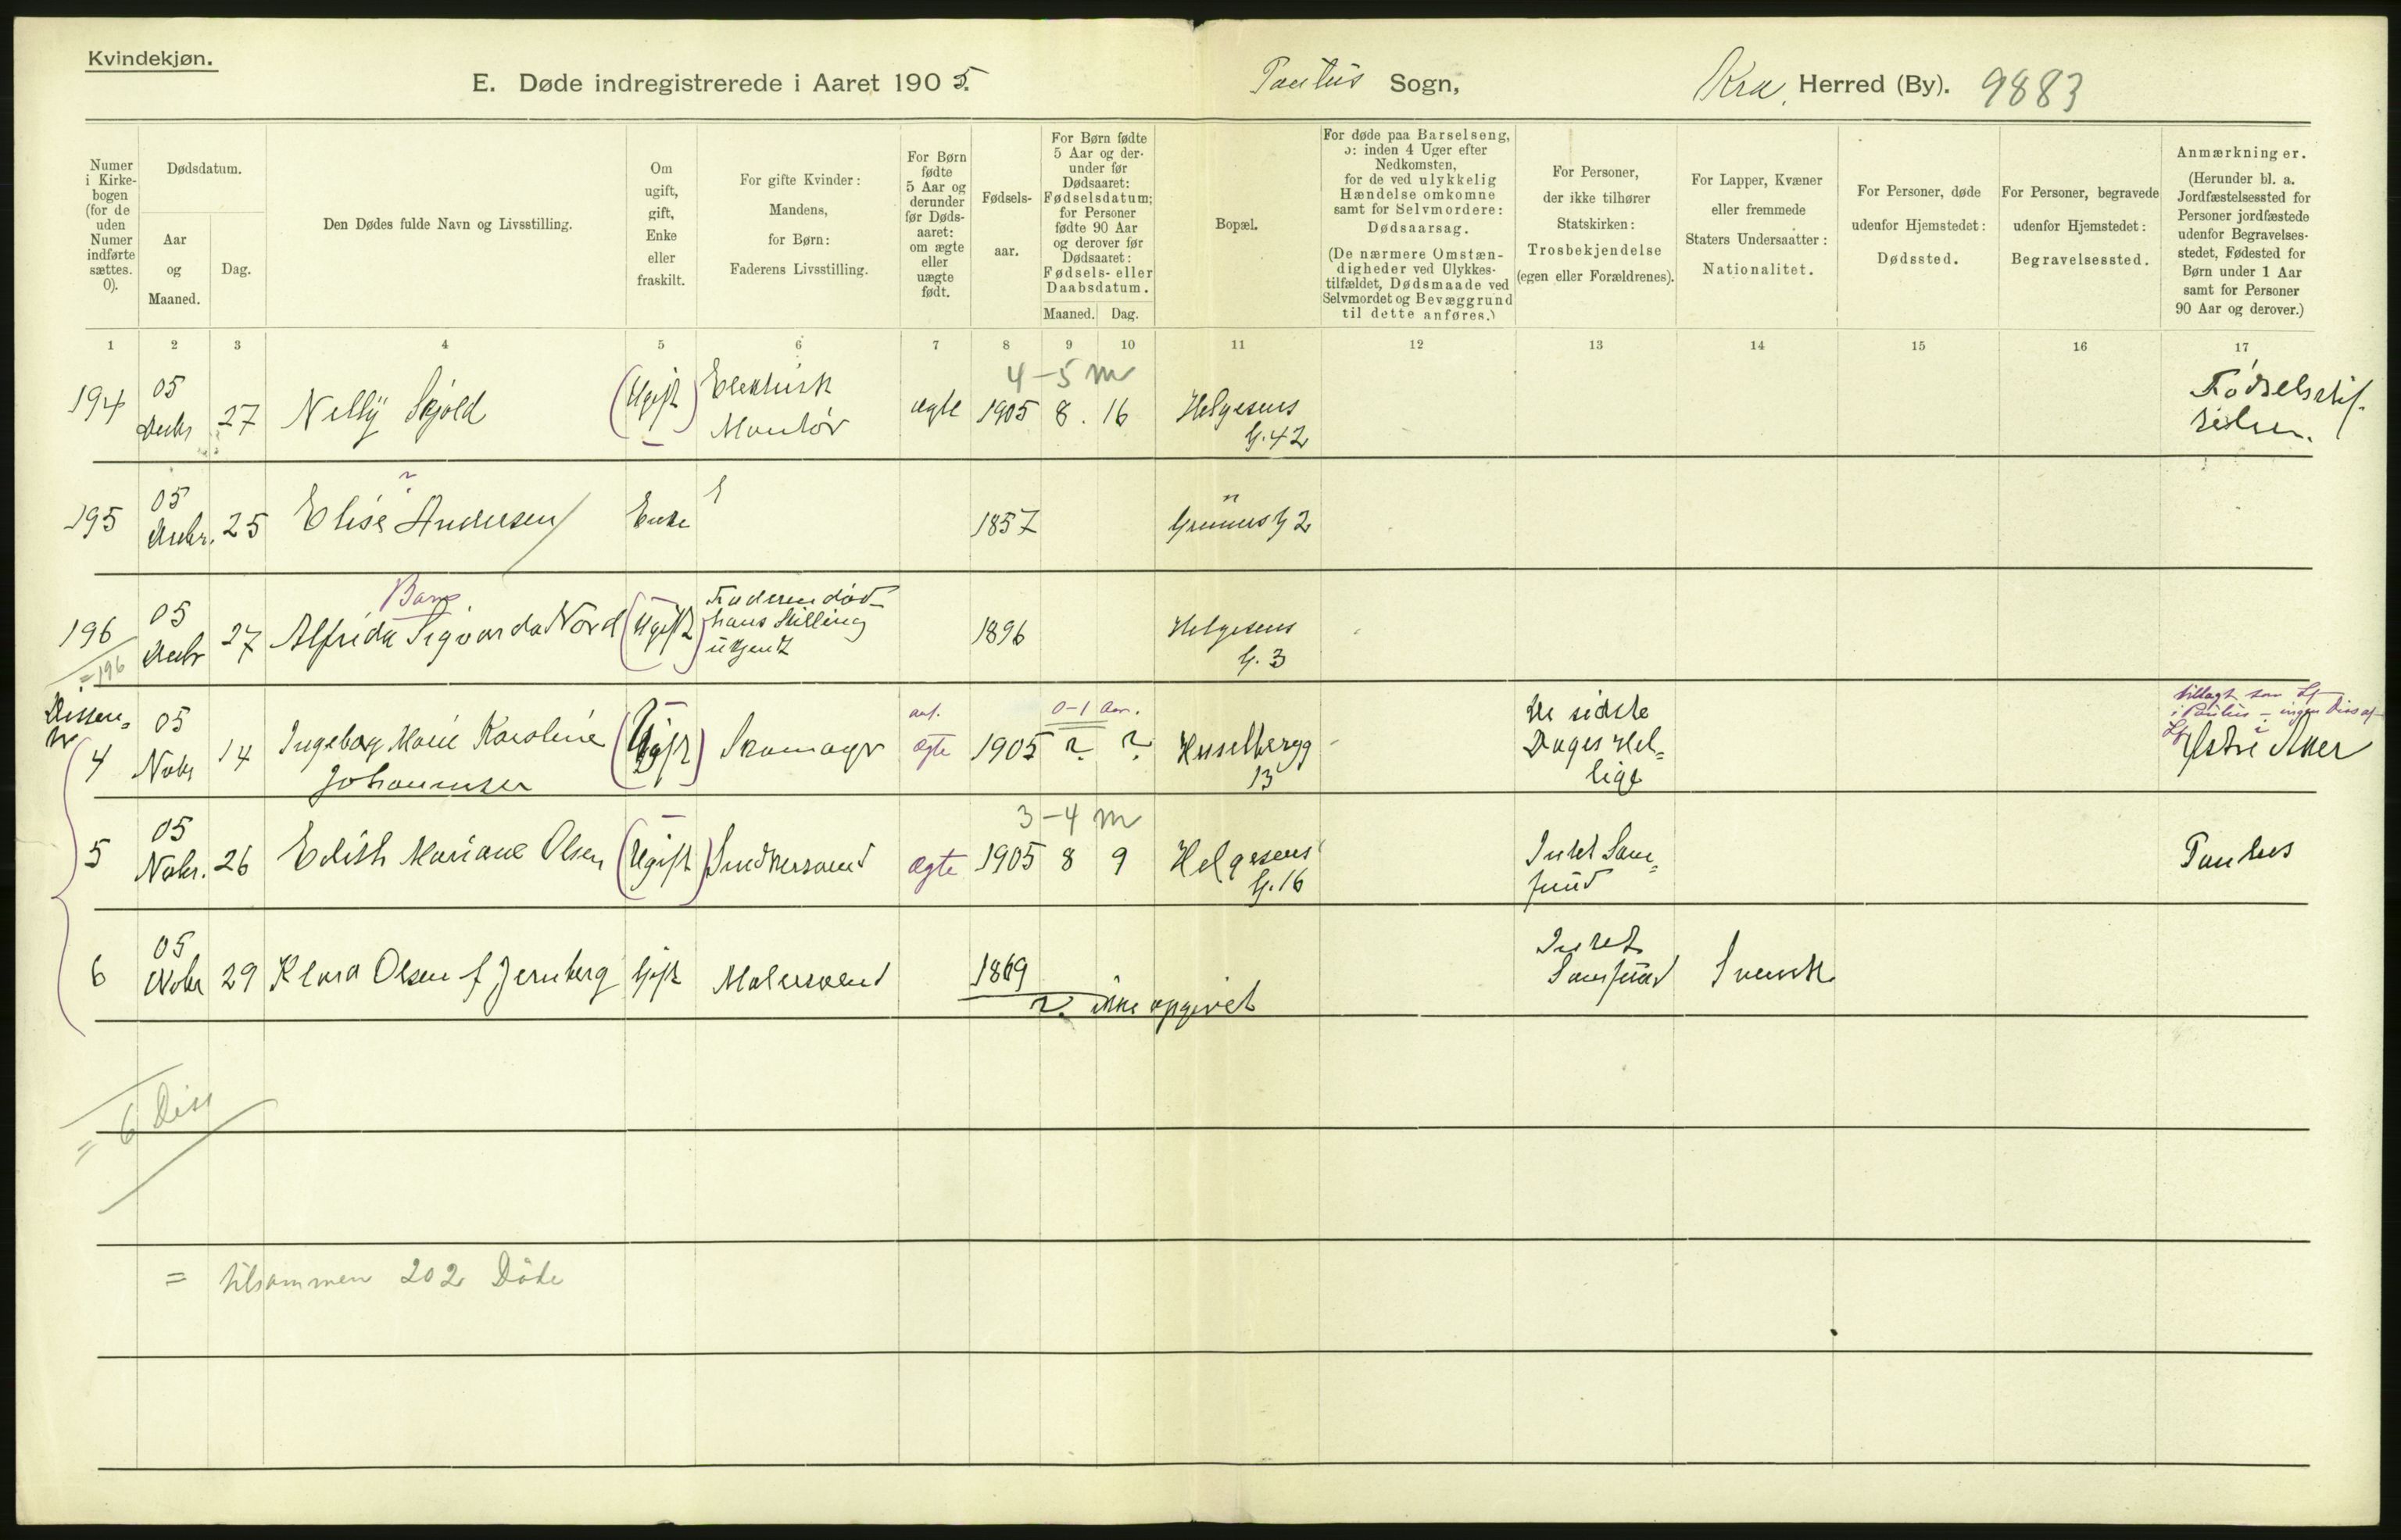 Kvindekjøn.
E. Døde indregistrerede i Aaret 1905. Paulus Sogn, Kra. Herred (By). 9883
Numer i Kirkebogen (for de uden Numer indførte sættes. 0).
Dødsdatum.
Aar og Maaned.
Dag.
Den Dødes fulde Navn og Livsstilling.
Om ugift, gift, Enke eller fraskilt.
For gifte Kvinder: Mandens, for Børn: Faderens Livsstilling.
For Børn fødte 5 Aar og derunder før Dødsaaret: om ægte eller uægte født.
Fødselsaar.
For Børn fødte 5 Aar og derunder før Dødsaaret: Fødselsdatum; for Personer fødte 90 Aar og derover før Dødsaaret: Fødsels- eller Daabsdatum.
Maaned. Dag.
Bopæl.
For døde paa Barselseng, ɔ: inden 4 Uger efter Nedkomsten, for de ved ulykkelig Hændelse omkomne samt for Selvmordere: Dødsaarsag.
(De nærmere Omstændigheder ved Ulykkestilfældet, Dødsmaade ved Selvmordet og Bevæggrund til dette anføres.)
For Personer, der ikke tilhører Statskirken: Trosbekjendelse (egen eller Forældrenes).
For Lapper, Kvæner eller fremmede Staters Undersaatter: Nationalitet.
For Personer, døde udenfor Hjemstedet: Dødssted.
For Personer, begravede udenfor Hjemstedet: Begravelsessted.
Anmærkninger.
(Herunder bl. a. Jordfæstelsessted for Personer jordfæstede udenfor Begravelsesstedet, Fødested for Børn under 1 Aar samt for Personer 90 Aar og derover.)
1 2 3 4 5 6 7 8 9 10 11 12 13 14 15 16 17
4-5 m
194 05 Decbr 27 Nelly Skjold (Ugift) Elektrisk Montør ægte 1905 8. 16 Helgesens G. 42 Fødselsstiftelsen.
195 05 Decbr. 25 Elise Andersen Enke ? 1857 Grüners G 2
Barn
196 05 Decbr 27 Alfrida Sigvarda Nord (Ugift) Faderen død hans Stilling ukjendt 1896 Helgesens G. 3
= 196
Dissen-
tr
ant. 0-1 Aar.
4 05 Novbr 14 Ingeborg Marie Karoline Johannesen (Ugift) Skomager ægte 1905 ? ? Hesselbergg 13 De sidste Dages Hellige
tillagt som
i Paulus - ingen Diss
Østre Aker
3-4 m
5 05 Novbr. 26 Edith Mariane Olsen (Ugift) Snedkersvend ægte 1905 8 9 Helgesens G. 16 Intet Samfund Paulus
6 05 Novbr 29 Klara Olsen f. Jernberg Gift Malersvend 1869 Intet Samfund Svensk
?. ikke opgivet
= 6 Diss
= tilsammen 202 Döde